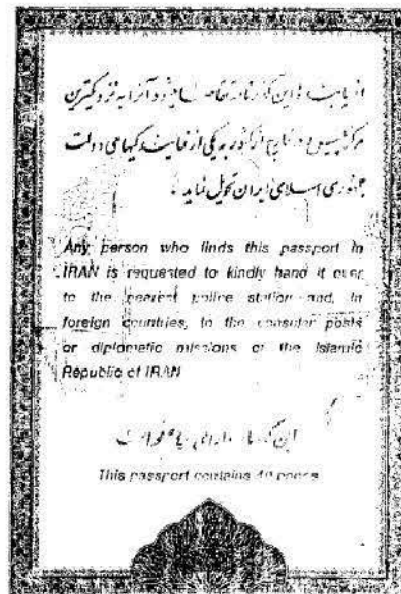 از یابنده این گذرنامه تقاضا میشود آنرا به نزدیکترین
مرکز پلیس و در خارج از کشور به یکی از نمایندگیهای دولت
جمهوری اسلامی ایران تحویل نماید .
Any person who finds this passport in
IRAN is requested to kindly hand it over
to the nearest police station and, in
foreign countries, to the consular posts
or diplomatic missions of the Islamic
Republic of IRAN
این گذرنامه دارای صفحه است
This passport contains 40 pages